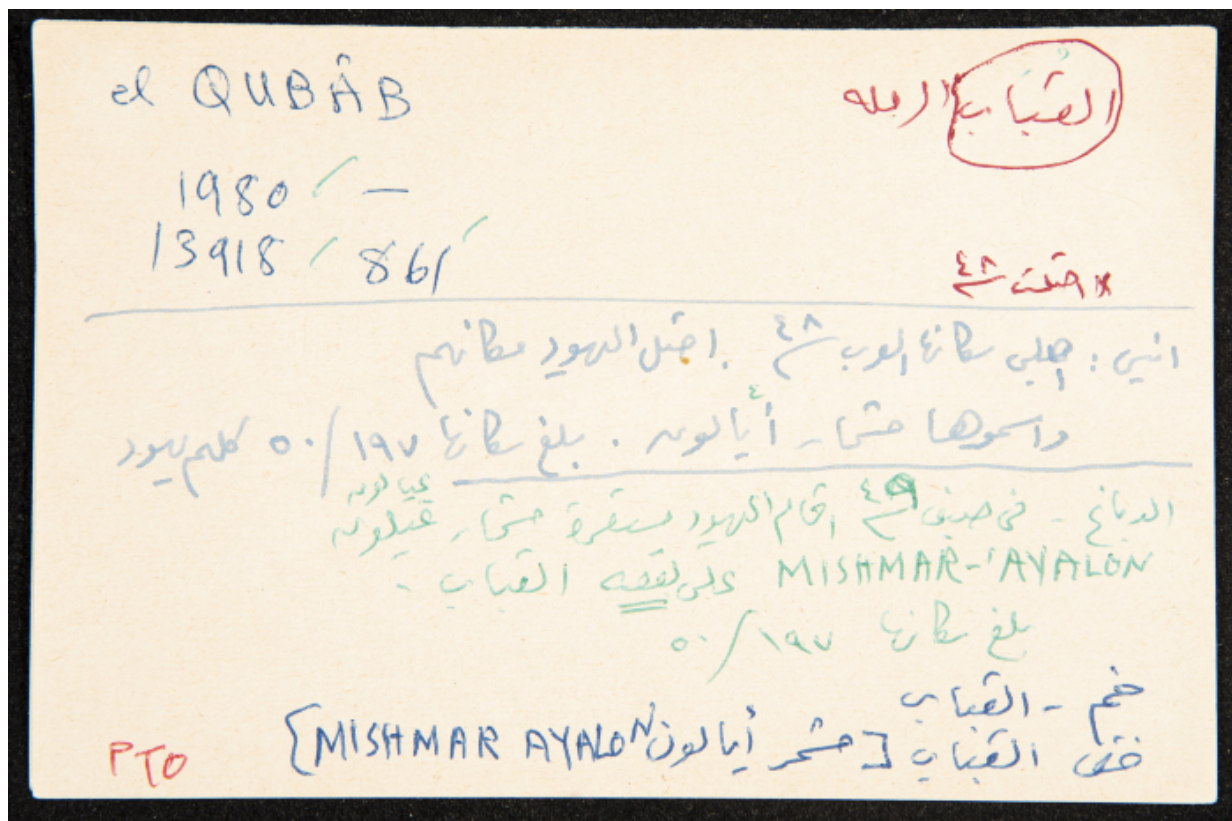 el QUBÂB
القُبَاب الرمله
1980 / —
13918 / 861
* احتلت ٤٨
انيس : اجلى سكانها العرب ٤٨ . احتل اليهود مكانهم
واسموها مشمار أيالون . بلغ سكانها ١٩٧ / ٥٠ كلهم يهود
الدباغ - في صيف ٤٩ اقام اليهود مستعمرة مشمار عيلون
عيالون
MISHMAR-'AYALON على بقعة القباب -
بلغ سكانها ١٩٧ / ٥٠
خم - القباب
القباب [مشمر أيالون MISHMAR AYALON]
PTO